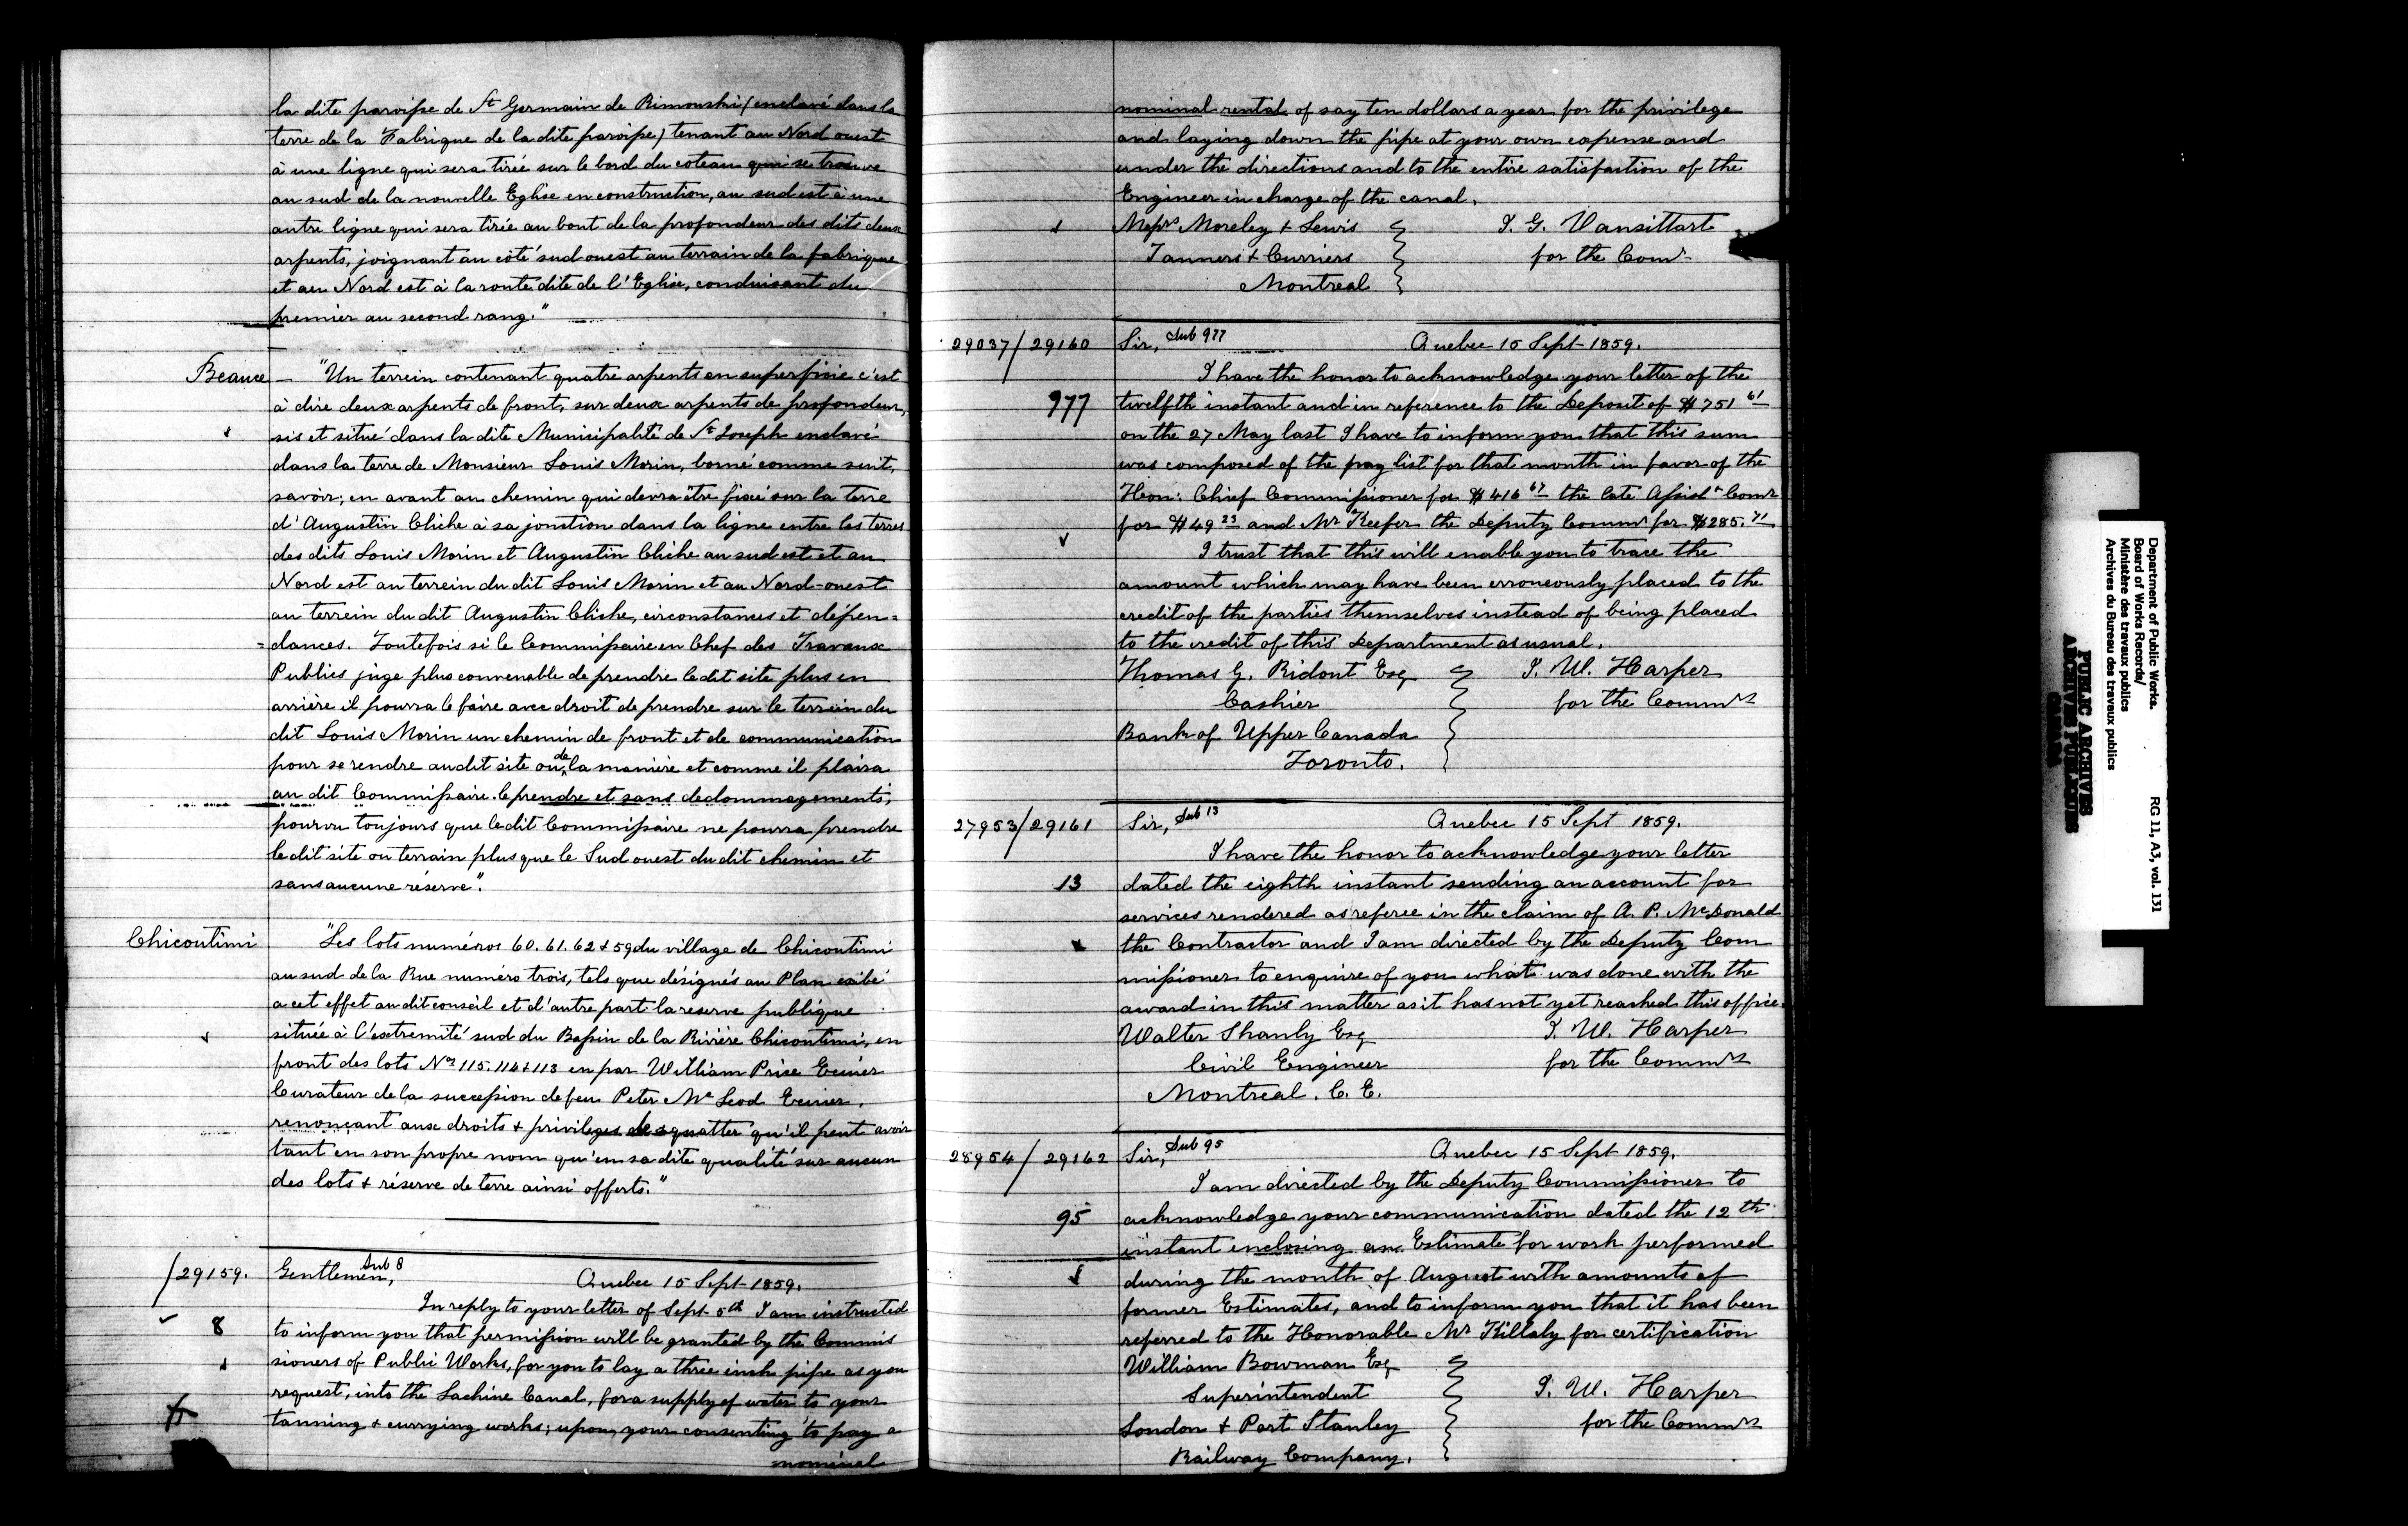 la dite paroisse de St Germain de Rimouski (enclavé dans la
terre de la Fabrique de la dite paroisse) tenant au Nord ouest
à une ligne qui sera tirée sur le bord du coteau qui se trouve
au sud de la nouvelle Eglise en construction, au sud est à une
autre ligne qui sera tirée au bout de la profondeur des dits deux
arpents, joignant au côté sud ouest au terrain de la fabrique
et au Nord est à la route dite de l'Eglise, conduisant du
premier au second rang."
Beauce — "Un terrein contenant quatre arpents en superficie c'est
à dire deux arpents de front, sur deux arpents de profondeur,
sis et situé dans la dite Municipalité de St Joseph enclavé
dans la terre de Monsieur Louis Morin, borné comme suit,
savoir; en avant au chemin qui devra être fixé sur la terre
d'Augustin Cliche à sa jonction dans la ligne entre les terres
des dits Louis Morin et Augustin Cliche au sud est et au
Nord est au terrein du dit Louis Morin et au Nord-ouest
au terrein du dit Augustin Cliche, circonstances et dépen=
=dances. Toutefois si le Commissaire en Chef des Travaux
Publics juge plus convenable de prendre le dit site plus en
arrière il pourra le faire avec droit de prendre sur le terrein du
dit Louis Morin un chemin de front et de communication
pour se rendre au dit site ou de la manière et comme il plaira
au dit Commissaire le prendre et sans dedommagements,
pourvu toujours que le dit Commissaire ne pourra prendre
le dit site ou terrain plus que le Sud ouest du dit chemin et
sans aucune réserve".
Chicoutimi "Les lots numéros 60. 61. 62 & 59 du village de Chicoutimi
au sud de la Rue numéro trois, tels que désignés au Plan exibé
a cet effet au dit conseil et d'autre part la reserve publique
située à l'extremité sud du Bassin de la Rivière Chicoutimi, en
front des lots Nos 115. 114 & 113 en par William Price Ecuier
Curateur de la succession de feu Peter Mc Leod Ecuier,
renonçant aux droits & privileges de squatter qu'il peut avoir
tant en son propre nom qu'en sa dite qualité sur aucun
des lots & réserve de terre ainsi offerts."
/29159. Gentlemen, Sub 8 Quebec 15 Sept 1859.
In reply to your letter of Sept 5th I am instructed
8 to inform you that permission will be granted by the Commis
sioners of Public Works, for you to lay a three inch pipe as you
request, into the Lachine Canal, for a supply of water to your
tanning & currying works; upon your consenting to pay a
nominal
nominal rental of say ten dollars a year for the privilege
and laying down the pipe at your own expense and
under the directions and to the entire satisfaction of the
Engineer in charge of the canal.
Messrs Moreley & Lewis T. G. Vansittart
Tanners & Curriers for the Comr
Montreal
29037/29160 Sir, Sub 977 Quebec 15 Sept 1859.
I have the honor to acknowledge your letter of the
977 twelfth instant and in reference to the Deposit of $751 61
on the 27 May last I have to inform you that this sum
was composed of the pay list for that month in favor of the
Hon: Chief Commissioner for $416 67 the late Assist Comr
for $49 23 and Mr Keefer the Deputy Commr for $285.71
I trust that this will enable you to trace the
amount which may have been erroneously placed to the
credit of the parties themselves instead of being placed
to the credit of this Department as usual.
Thomas G. Ridout Esq T. W. Harper
Cashier for the Commrs
Bank of Upper Canada
Toronto.
27953/29161 Sir, Sub 13 Quebec 15 Sept 1859.
I have the honor to acknowledge your letter
13 dated the eighth instant sending an account for
services rendered as referee in the claim of A. P. McDonald
the Contractor and I am directed by the Deputy Com
missioner to enquire of you what was done with the
award in this matter as it has not yet reached this office.
Walter Shanly Esq T. W. Harper
Civil Engineer for the Commrs
Montreal. C. E.
28954/29162 Sir, Sub 95 Quebec 15 Sept 1859.
I am directed by the Deputy Commissioner to
95 acknowledge your communication dated the 12th
instant enclosing an Estimate for work performed
during the month of August with amounts of
former Estimates, and to inform you that it has been
referred to the Honorable Mr Killaly for certification
William Bowman Esq
Superintendent T. W. Harper
London & Port Stanley for the Commrs
Railway Company.
Department of Public Works.
Board of Works Records/
Ministère des travaux publics
Archives du Bureau des travaux publics
RG 11, A3, vol. 131
PUBLIC ARCHIVES
ARCHIVES PUBLIQUES
CANADA